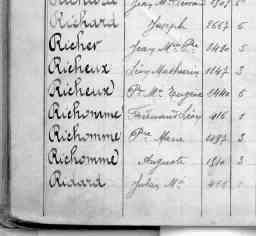 Richard Joseph 2667 6
Richer Jean Mie Pre 1480 5
Richeux Léon Mathurin 1147 3
Richeux Pre Mie Eugène 1440 6
Richomme Fernand Léon 416 1
Richomme Pre Marie 1487 3
Richomme Auguste 1510 3
Ridard Julien Mie